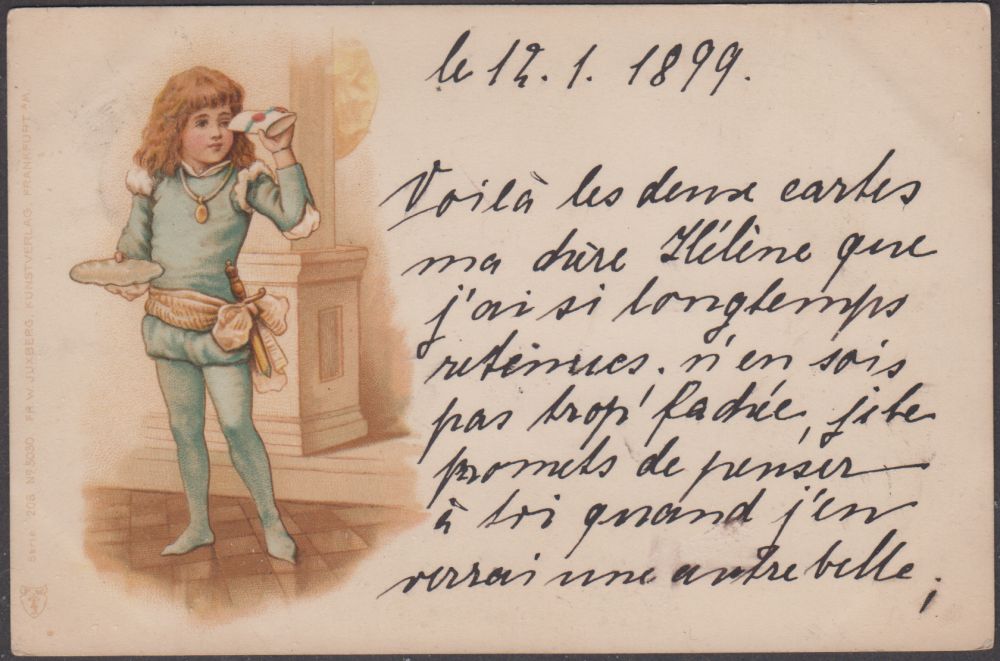 le 12. 1. 1899.
Voilà les deux cartes
ma chère Hélène que
j'ai si longtemps
retenues. n'en sois
pas trop fachée, je te
promets de penser
à toi quand j'en
verrai une autre belle;
Serie 208 No 5030 FR. W. JUXBERG, KUNSTVERLAG, FRANKFURT A/M.